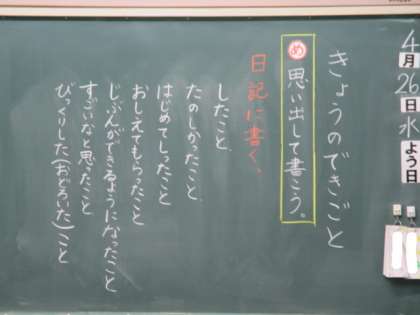 4月26日水よう日
きょうのできごと
め思い出して書こう。
日記に書く、
したこと、
たのしかったこと、
はじめてしったこと
おしえてもらったこと
じぶんができるようになったこと
すごいなと思ったこと
びっくりした(おどろいた)こと